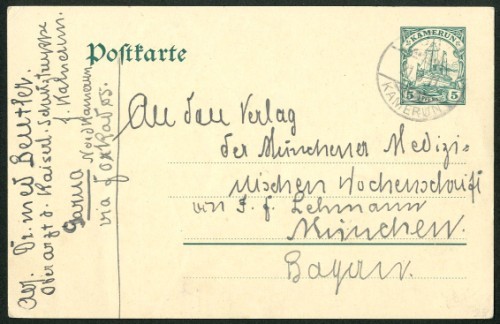 Postkarte
KAMERUN
5 5
KAMERUN
An den Verlag
der Münchener Medizi-
nischen Wochenschrift
von J. F. Lehmann
München.
Bayern.
Abs. Dr. med Beutler.
Oberarzt d. Kaiserl. Schutztruppe
f. Kamerun.
Garua Nordkamerun
via